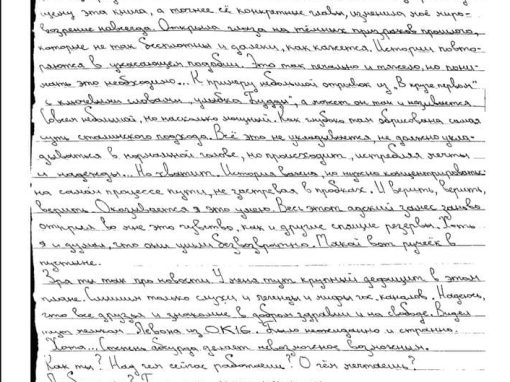 цену эта книга, а точнее её конкретные главы, изменила моё миро-
воззрение навсегда. Открыла глаза на тёмных призраков прошлого,
которые не так бесплотны и далеки, как кажется. Истории повто-
ряются в ужасающем подобии. Это так печально и тяжело, но пони-
мать это необходимо... К примеру небольшой отрывок из „В круге первом"
с ключевыми словами „улыбка Будды", а может он так и называется.
Совсем небольшой, но насколько мощный. Как глубоко там сбрирована самая
суть сталинского подхода. Всё это не укладывается, не должно укла-
дываться в нормальной голове, но происходит, истребляя мечты
и надежды... Но хватит. История важна, но нужно концентрироваться
на самом процессе пути, не застревая в пробках. И верить, верить,
верить. Оказывается я это умею. Весь этот адский занес заново
открыл во мне это чувство, как и другие спящие резервы. Хоть
я и думал, что они ушли безвозвратно. Такой вот ручеёк в
пустыне.
Зря ты так про новости. У меня тут крупный дефицит в этом
плане. Слышим только слухи и легенды и мифы гос. каналов. Надеюсь,
что все друзья и знакомые в добром здравии и на свободе. Видел
тут мельком Левона из ОК16. Было неожиданно и странно.
Хотя... Степень абсурда делает невозможное возможным.
Как ты? Над чем сейчас работаешь? О чём мечтаешь?